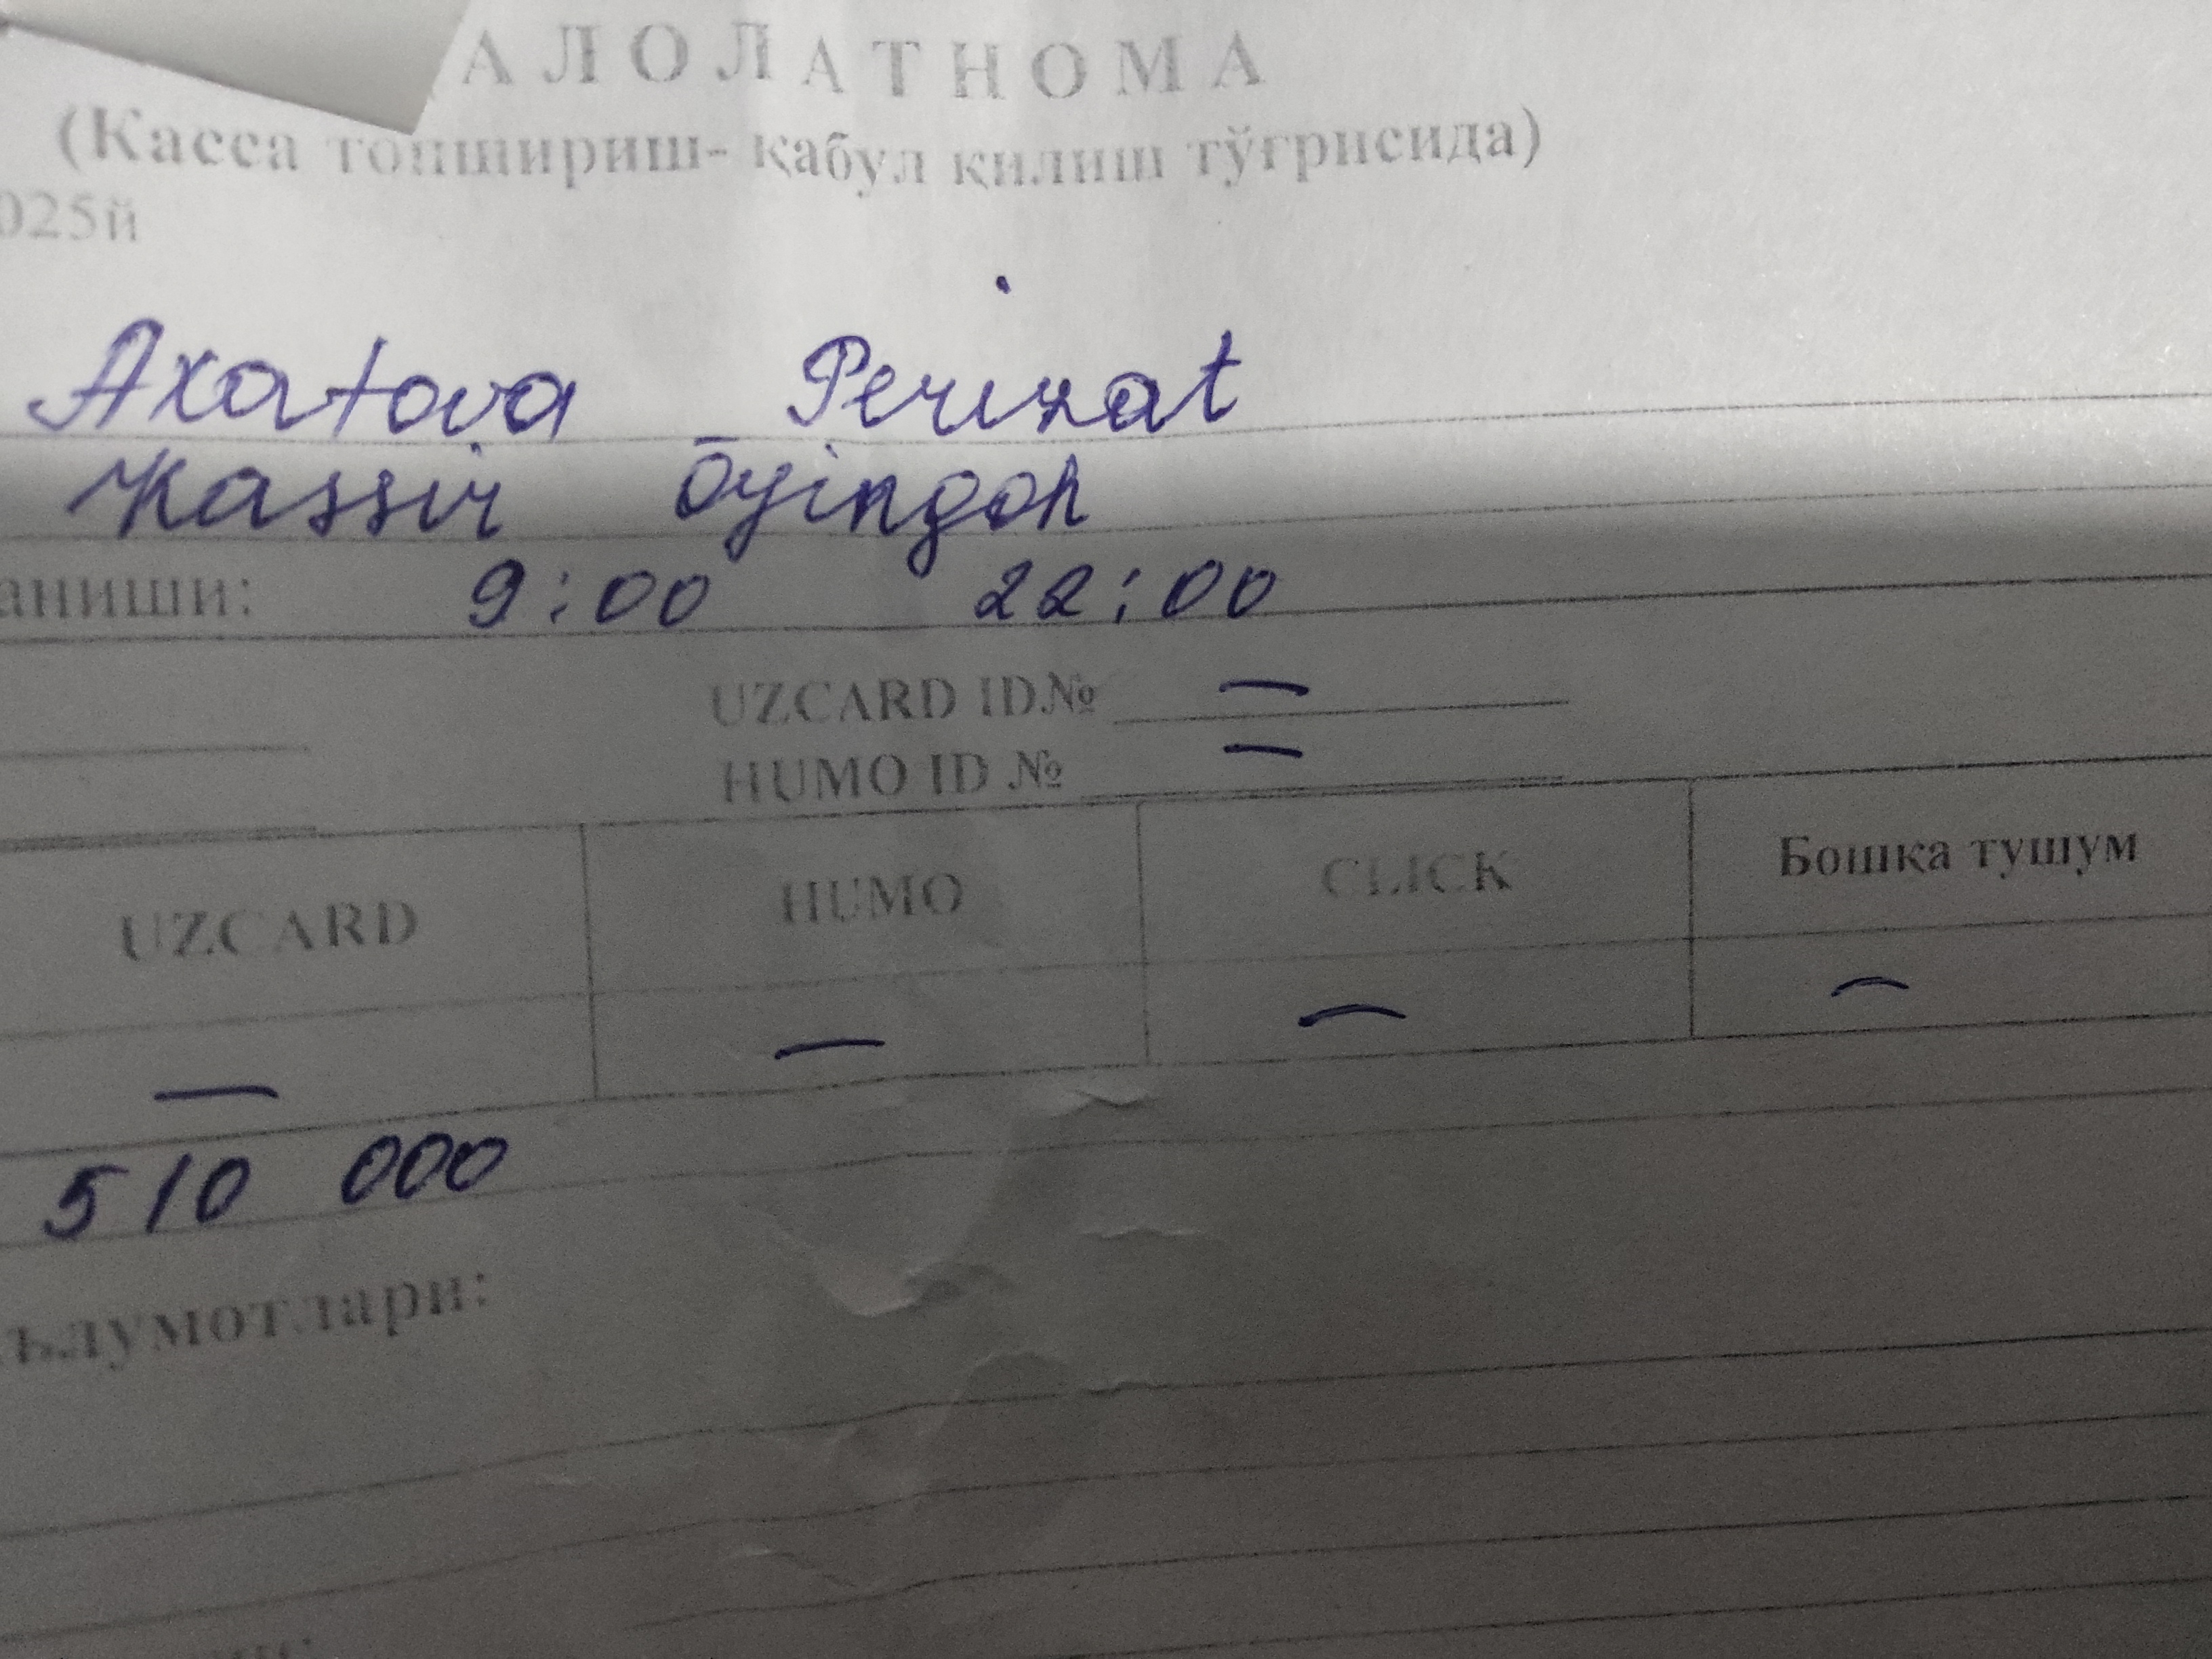 АЛОЛАТНОМА
(Касса топшириш- қабул қилиш тўғрисида)
025й
Axatova Perizat
Kassir ōyingoh
аниши: 9:00 22:00
UZCARD ID№ —
HUMO ID № —
UZCARD HUMO CLICK Бошқа тушум
— — — —
510 000
ълумотлари: